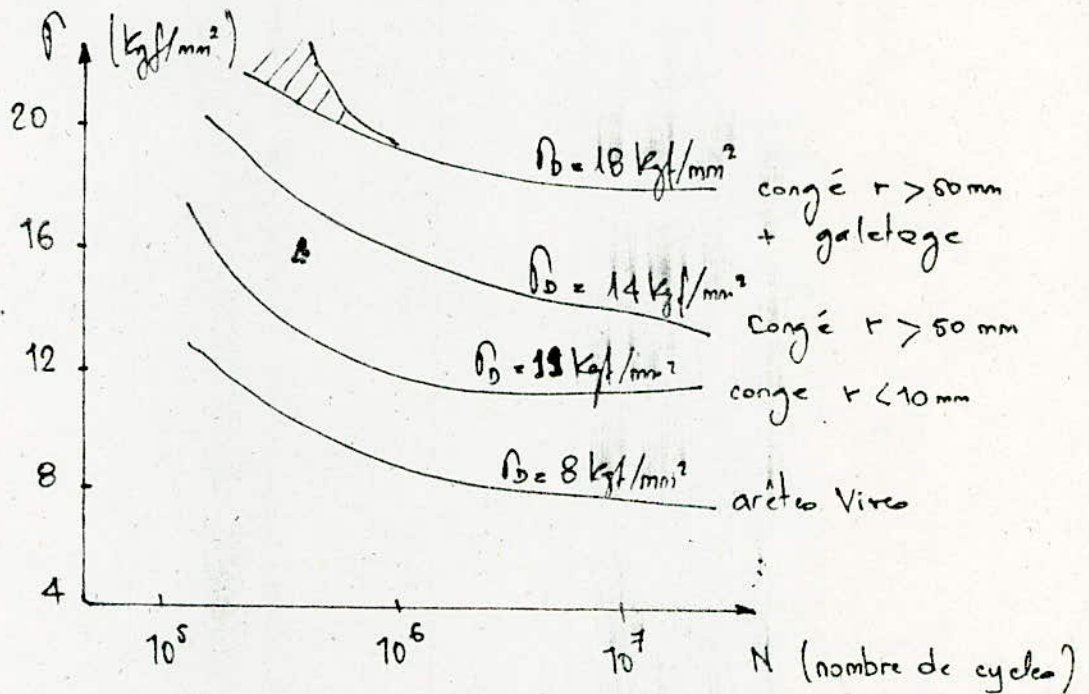 σ (Kgf/mm²)
20
16
12
8
4
σD = 18 Kgf/mm²
congé r > 50mm
+ galetage
σD = 14 Kgf/mm²
congé r > 50 mm
σD = 11 Kgf/mm²
conge r < 10 mm
σD = 8 Kgf/mm²
arêtes Vives
10⁵ 10⁶ 10⁷ N (nombre de cycles)